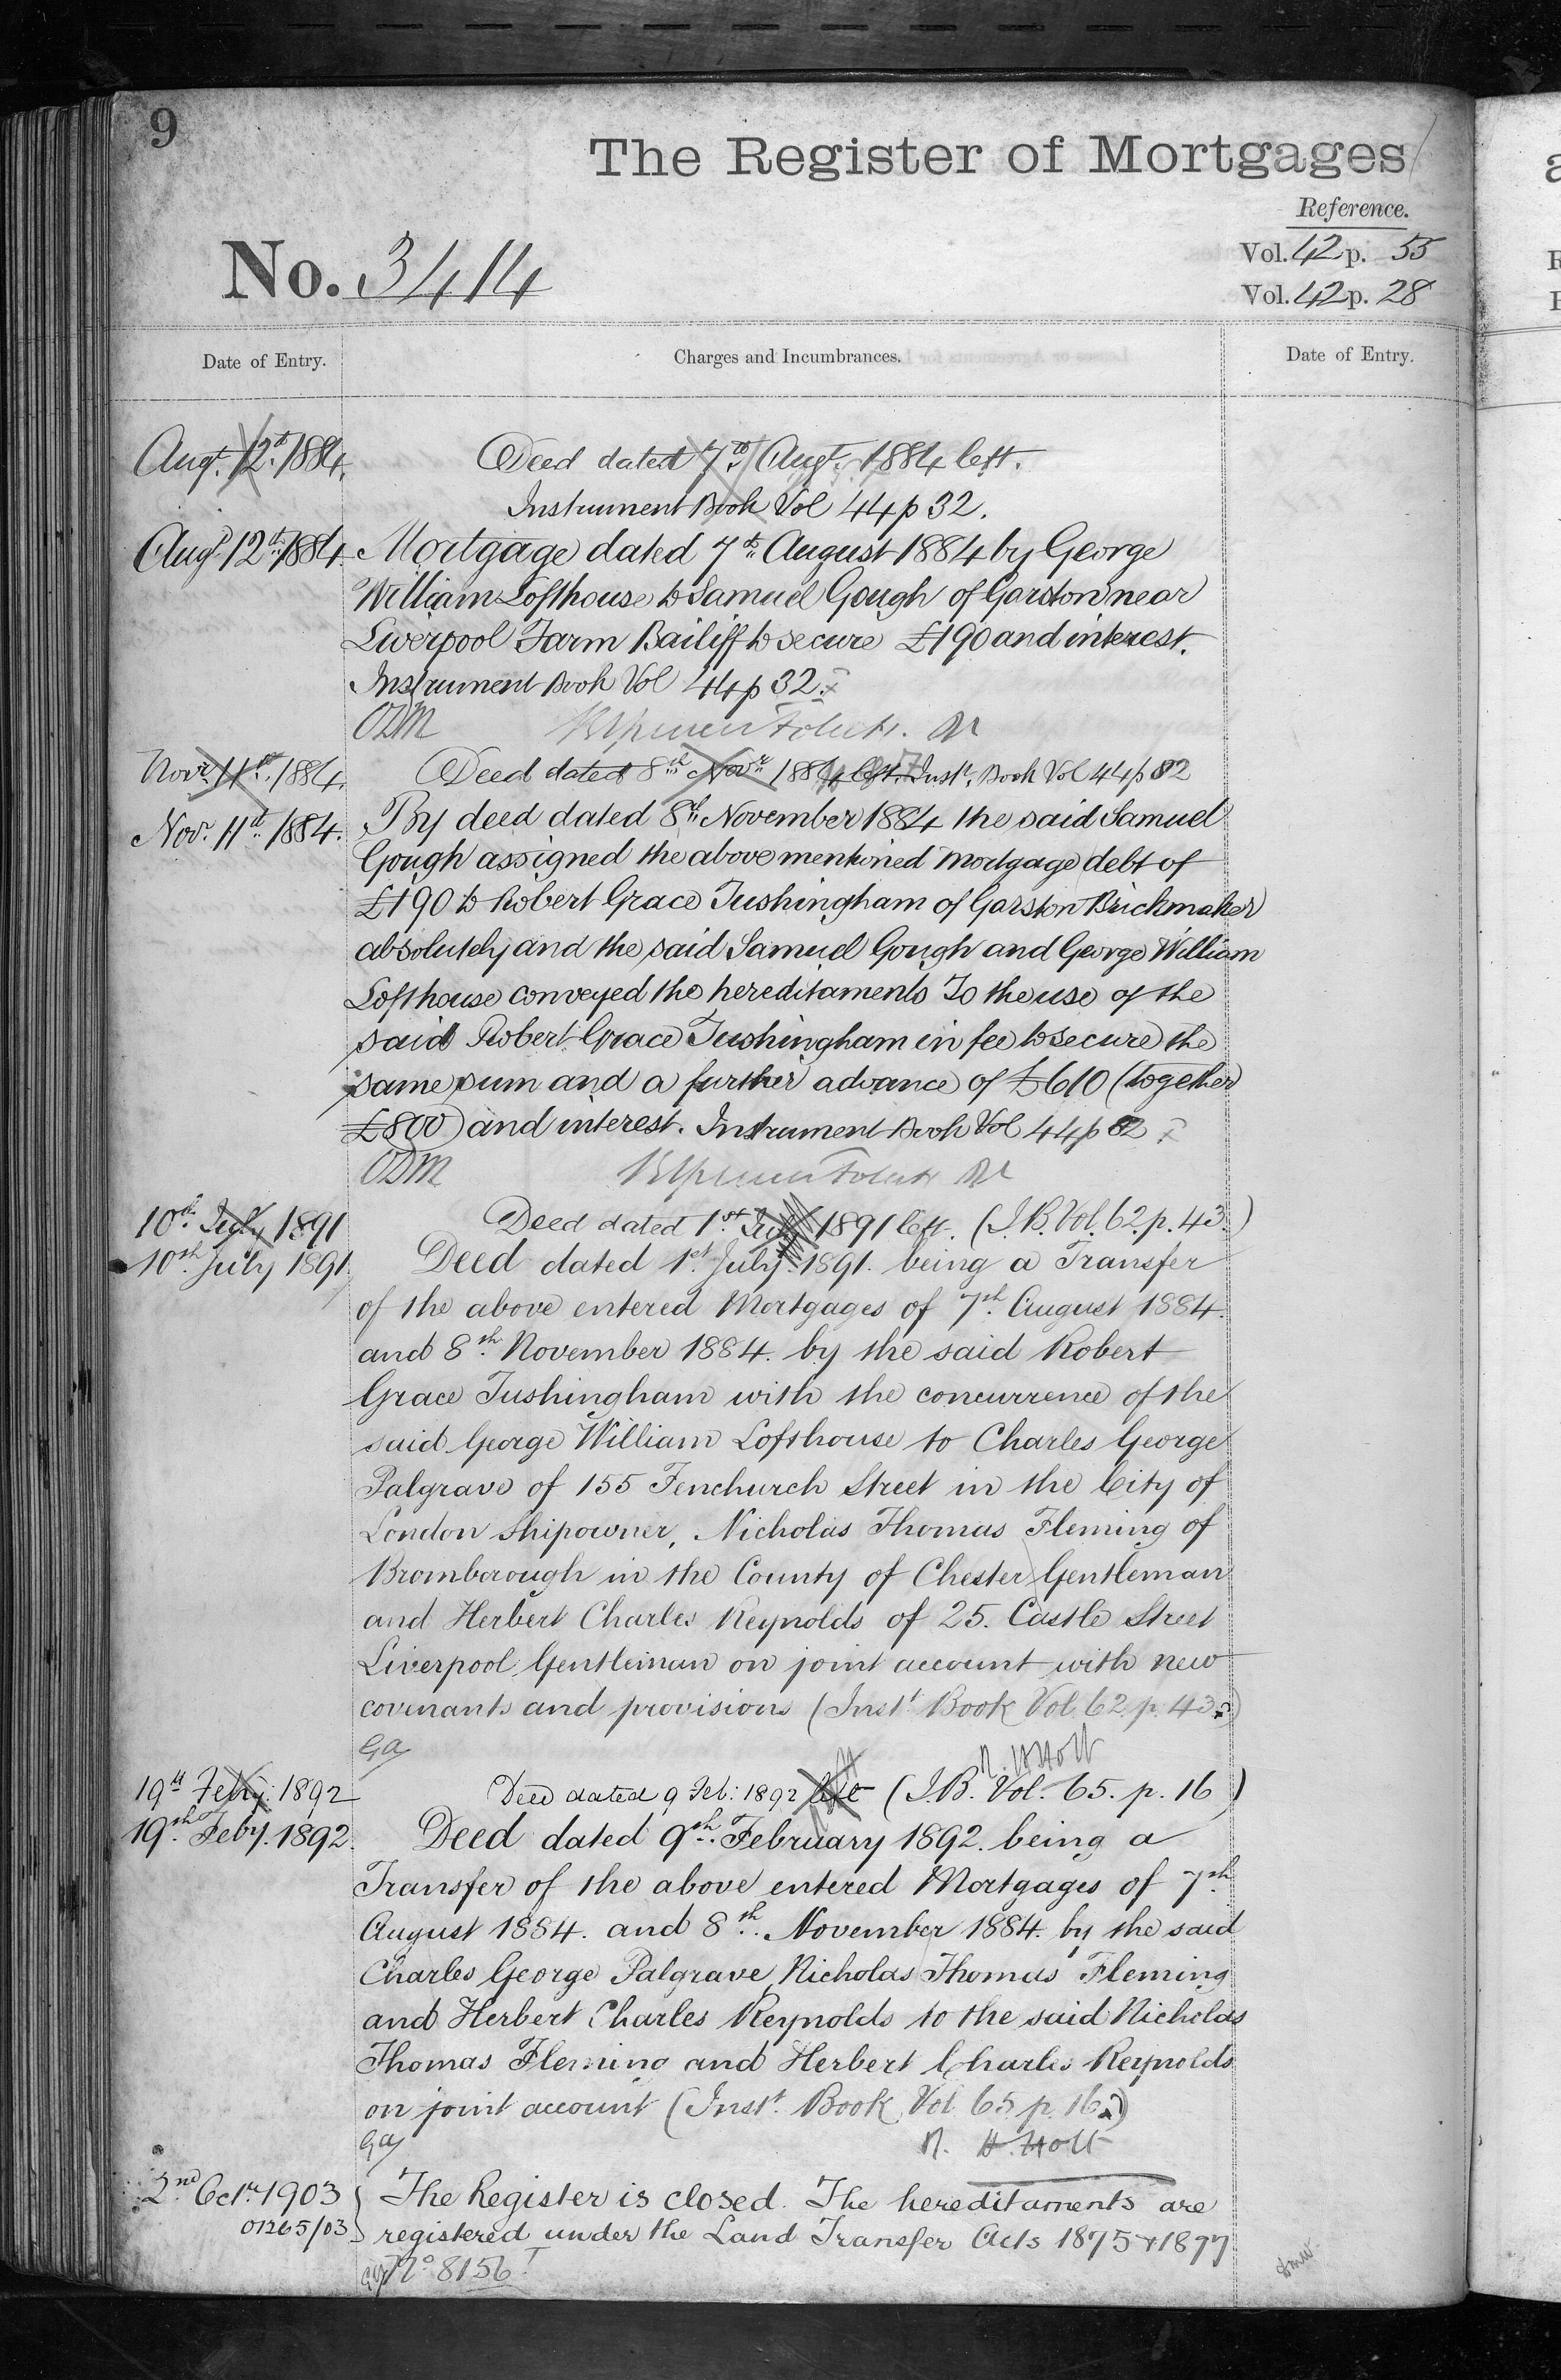 9
The Register of Mortgages
Reference.
No. 3414
Vol. 42 p. 55
Vol. 42 p. 28
Date of Entry.
Charges and Incumbrances.
Date of Entry.
Augt. 12th 1884.
Deed dated 7th Augt. 1884 left.
Instrument Book Vol 44 p 32.
Augt 12th 1884.
Mortgage dated 7th August 1884 by George
William Lofthouse to Samuel Gough of Garston near
Liverpool Farm Bailiff to secure £190 and interest.
Instrument Book Vol 44 p 32.
ODM
Novr. 11th 1884.
Deed dated 8th Novr. 1884 left. Inst. Book Vol 44 p 82
Nov. 11th 1884.
By deed dated 8th November 1884 the said Samuel
Gough assigned the above mentioned mortgage debt of
£190 to Robert Grace Tushingham of Garston Brickmaker
absolutely and the said Samuel Gough and George William
Lofthouse conveyed the hereditaments To the use of the
said Robert Grace Tushingham in fee to secure the
same sum and a further advance of £610 (together
£800) and interest. Instrument Book Vol 44 p 82
ODM
10th July 1891
Deed dated 1st July 1891 left. (I.B. Vol. 62. p. 43.)
10th July 1891.
Deed dated 1st July 1891. being a Transfer
of the above entered Mortgages of 7th August 1884.
and 8th November 1884. by the said Robert
Grace Tushingham with the concurrence of the
said George William Lofthouse to Charles George
Palgrave of 155 Fenchurch Street in the City of
London Shipowner, Nicholas Thomas Fleming of
Bromborough in the County of Chester Gentleman
and Herbert Charles Reynolds of 25. Castle Street
Liverpool, Gentleman on joint account with new
covenants and provisions (Inst. Book Vol. 62. p. 43.)
GA
N. H Holt
19th Feby. 1892
Deed dated 9 Feb: 1892 left (I.B. Vol. 65. p. 16)
19th Feby. 1892.
Deed dated 9th February 1892. being a
Transfer of the above entered Mortgages of 7th
August 1884. and 8th November 1884. by the said
Charles George Palgrave, Nicholas Thomas Fleming
and Herbert Charles Reynolds to the said Nicholas
Thomas Fleming and Herbert Charles Reynolds
on joint account (Inst. Book Vol 65 p. 16.)
GA
N. H. Holt
2nd Octr. 1903
01265/03
The Register is closed. The hereditaments are
registered under the Land Transfer Acts 1875 & 1897
No 8156